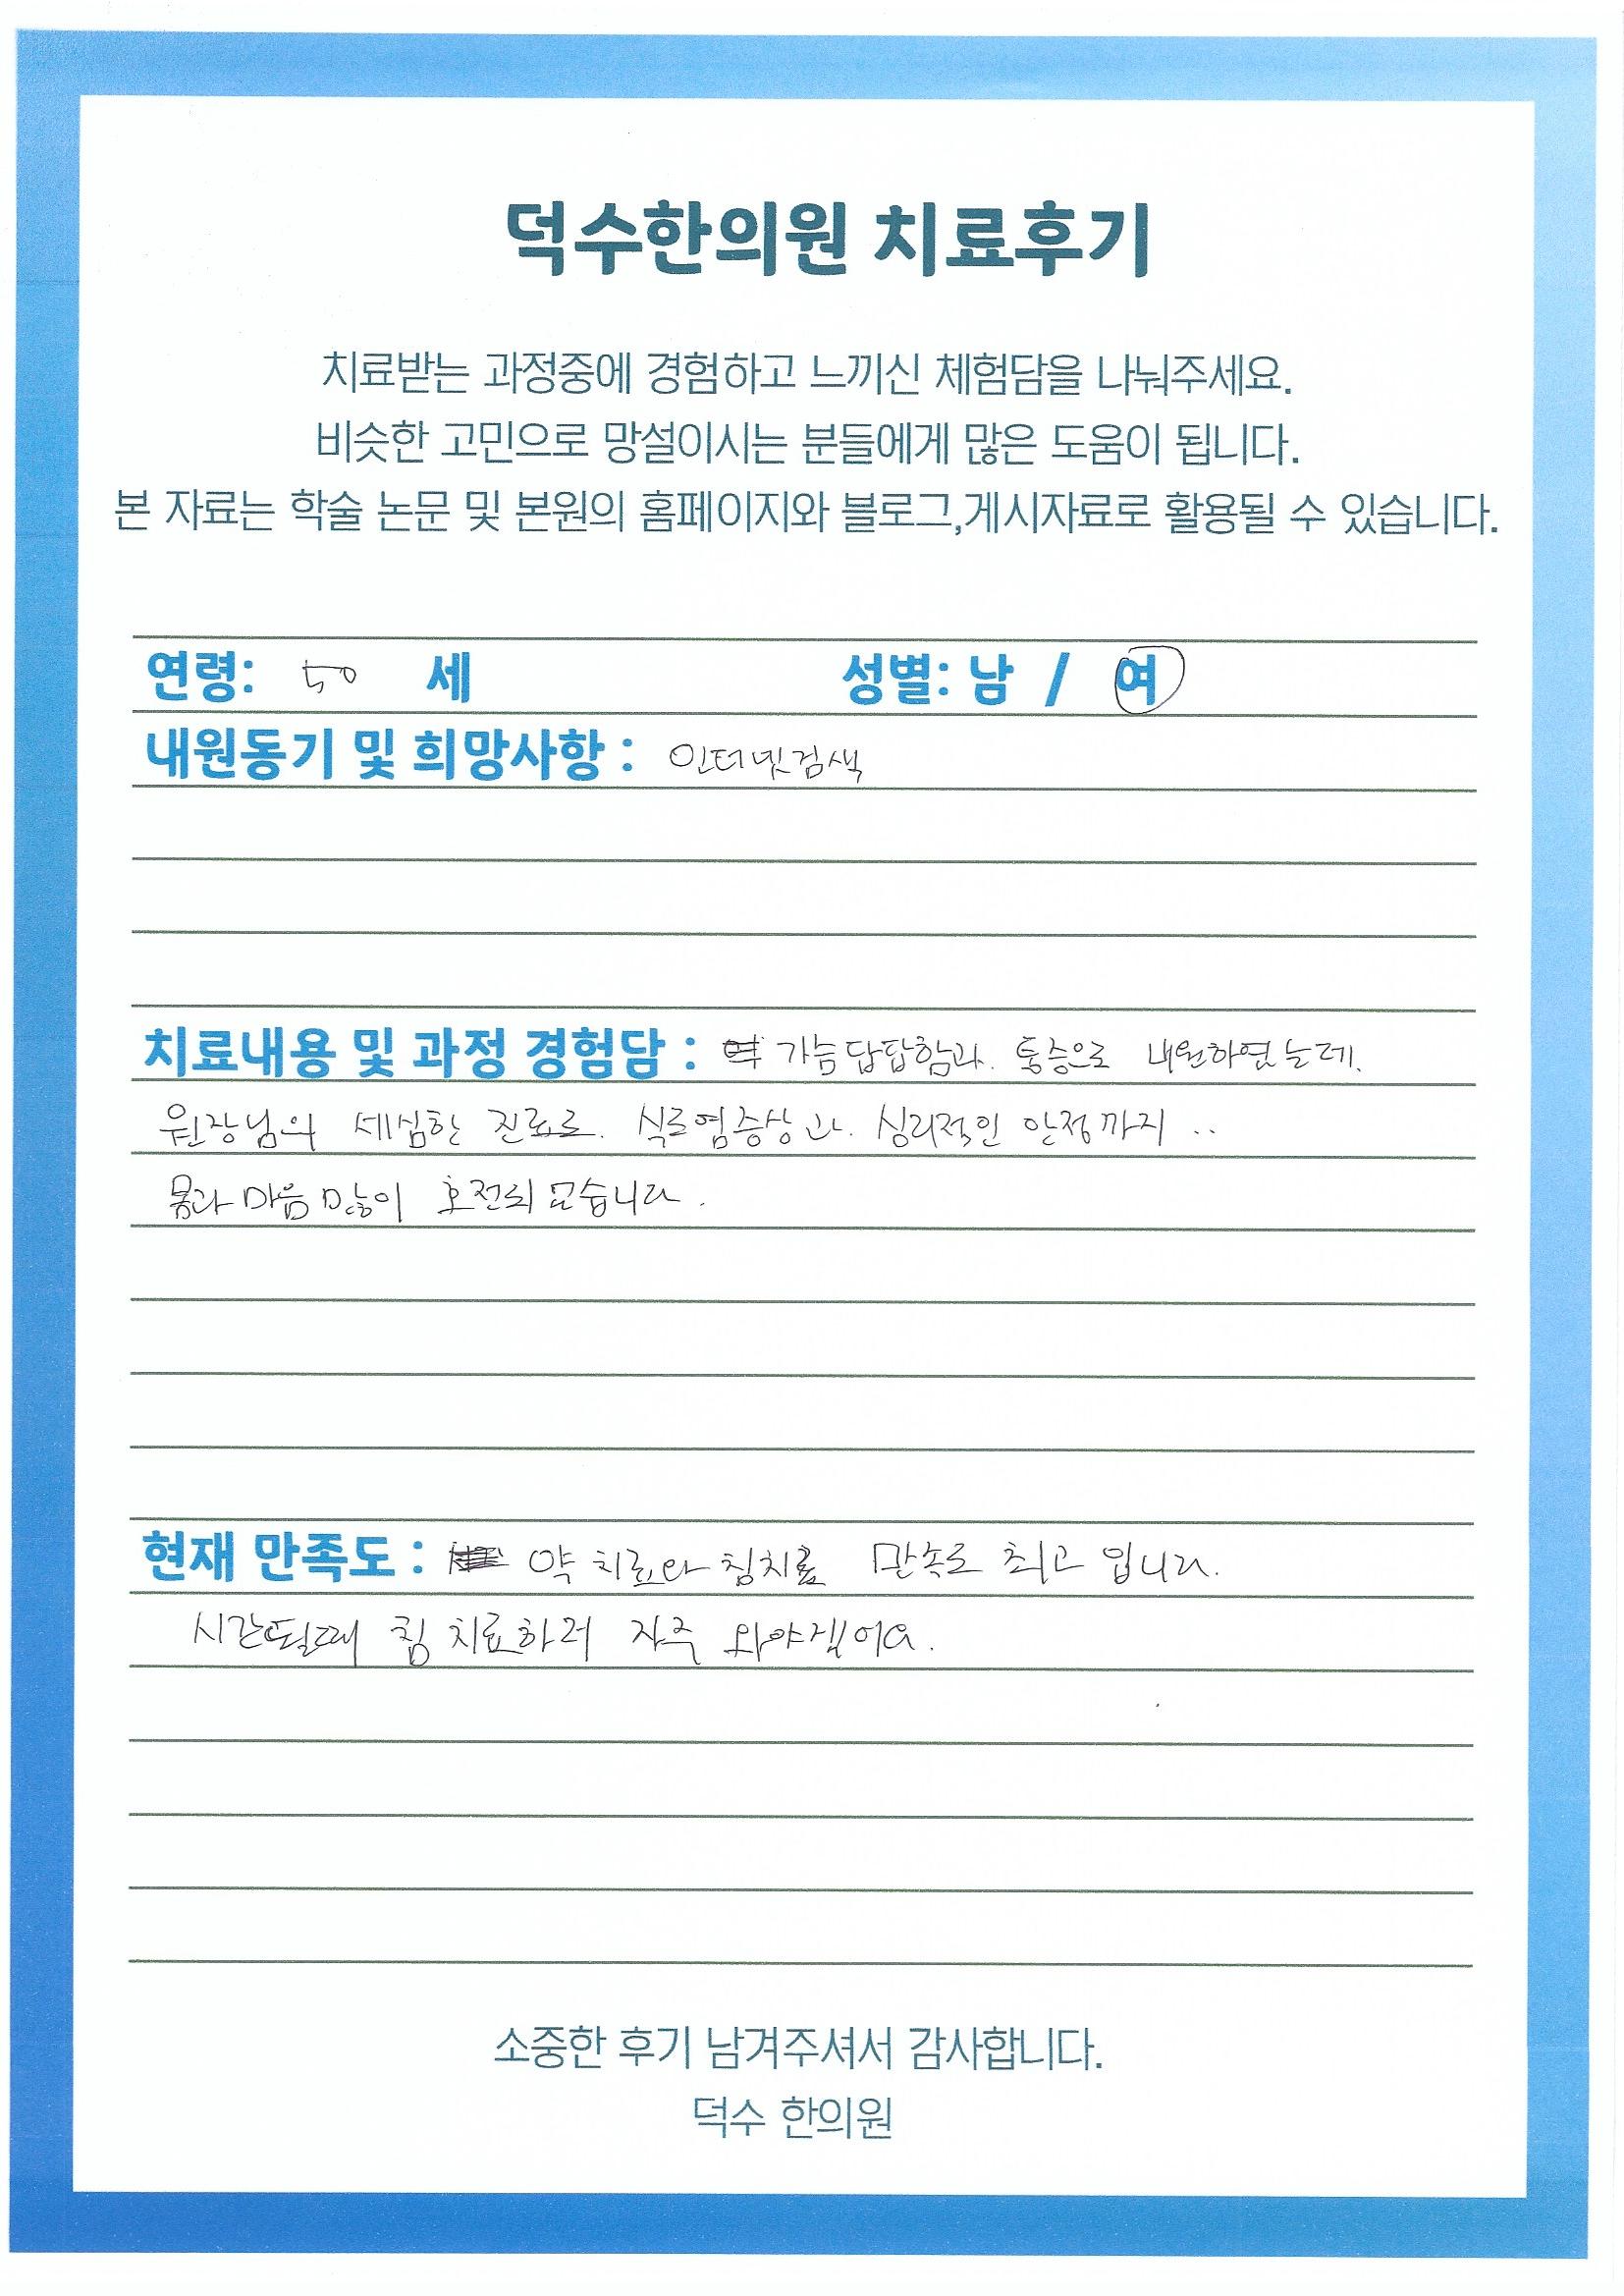 덕수한의원 치료후기
치료받는 과정중에 경험하고 느끼신 체험담을 나눠주세요.
비슷한 고민으로 망설이시는 분들에게 많은 도움이 됩니다.
본 자료는 학술 논문 및 본원의 홈페이지와 블로그,게시자료로 활용될 수 있습니다.
연령: 50 세 성별: 남 / 여
내원동기 및 희망사항 : 인터넷검색
치료내용 및 과정 경험담 : 가슴답답함과 통증으로 내원하였는데.
원장님의 세심한 진료로. 식도염증상과. 심리적인 안정까지 ..
몸과 마음 많이 호전되었습니다.
현재 만족도 : 약 치료와 침치료 만족도 최고 입니다.
시간될때 침 치료하러 자주 와야겠어요.
소중한 후기 남겨주셔서 감사합니다.
덕수 한의원